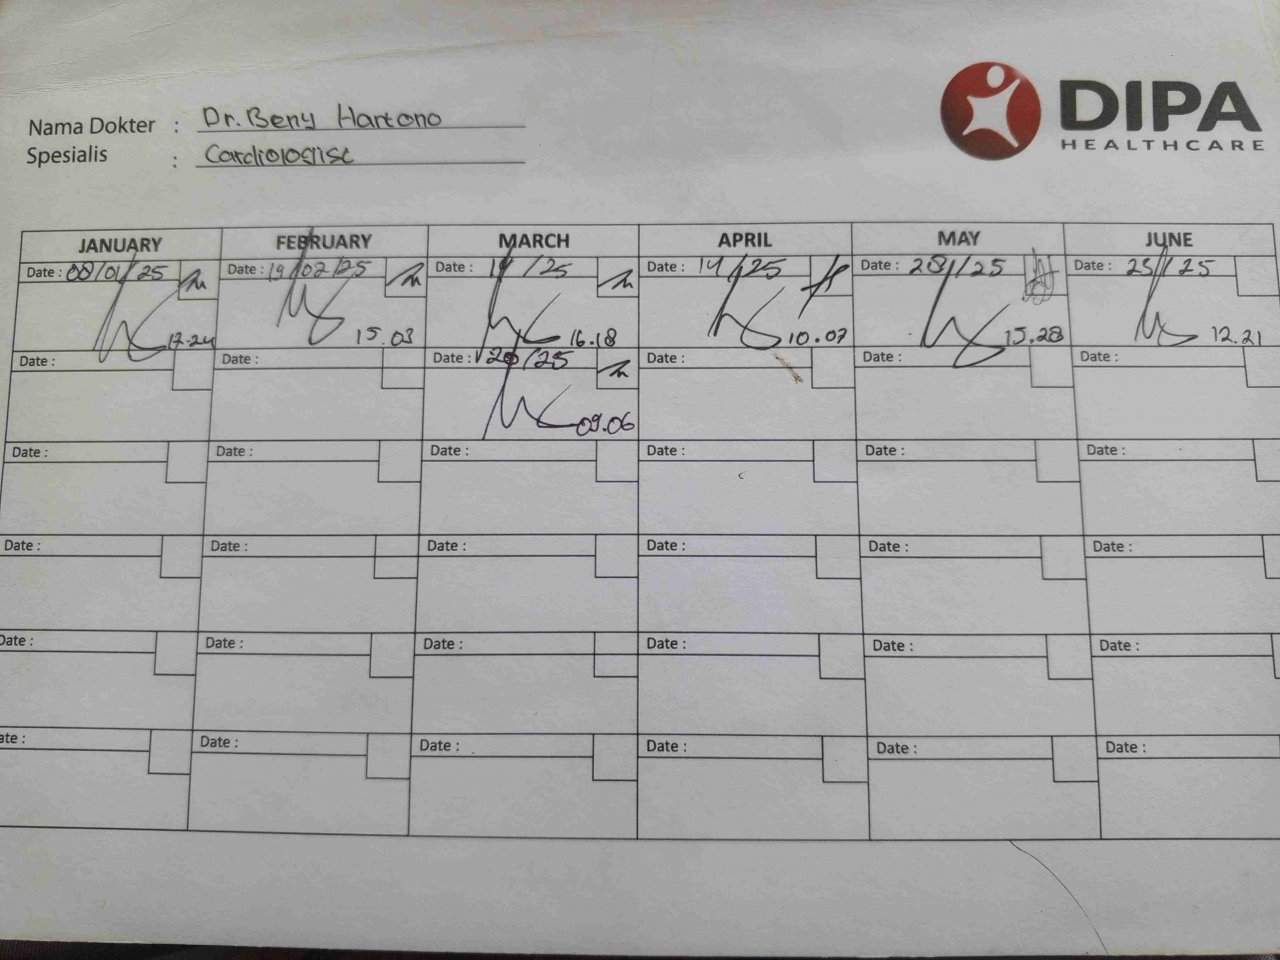 Nama Dokter : Dr. Beny Hartono
Spesialis : Cardiologist
DIPA
HEALTHCARE
JANUARY FEBRUARY MARCH APRIL MAY JUNE
Date : 08/01/25 Date : 19/02/25 Date : /25 Date : 14/25 Date : 28/25 Date : /25
15.03 16.18 10.07 15.28 12.21
Date : Date : Date : 20/25 Date : Date : Date :
09.06
Date : Date : Date : Date : Date : Date :
Date : Date : Date : Date : Date : Date :
Date : Date : Date : Date : Date : Date :
ate : Date : Date : Date : Date : Date :